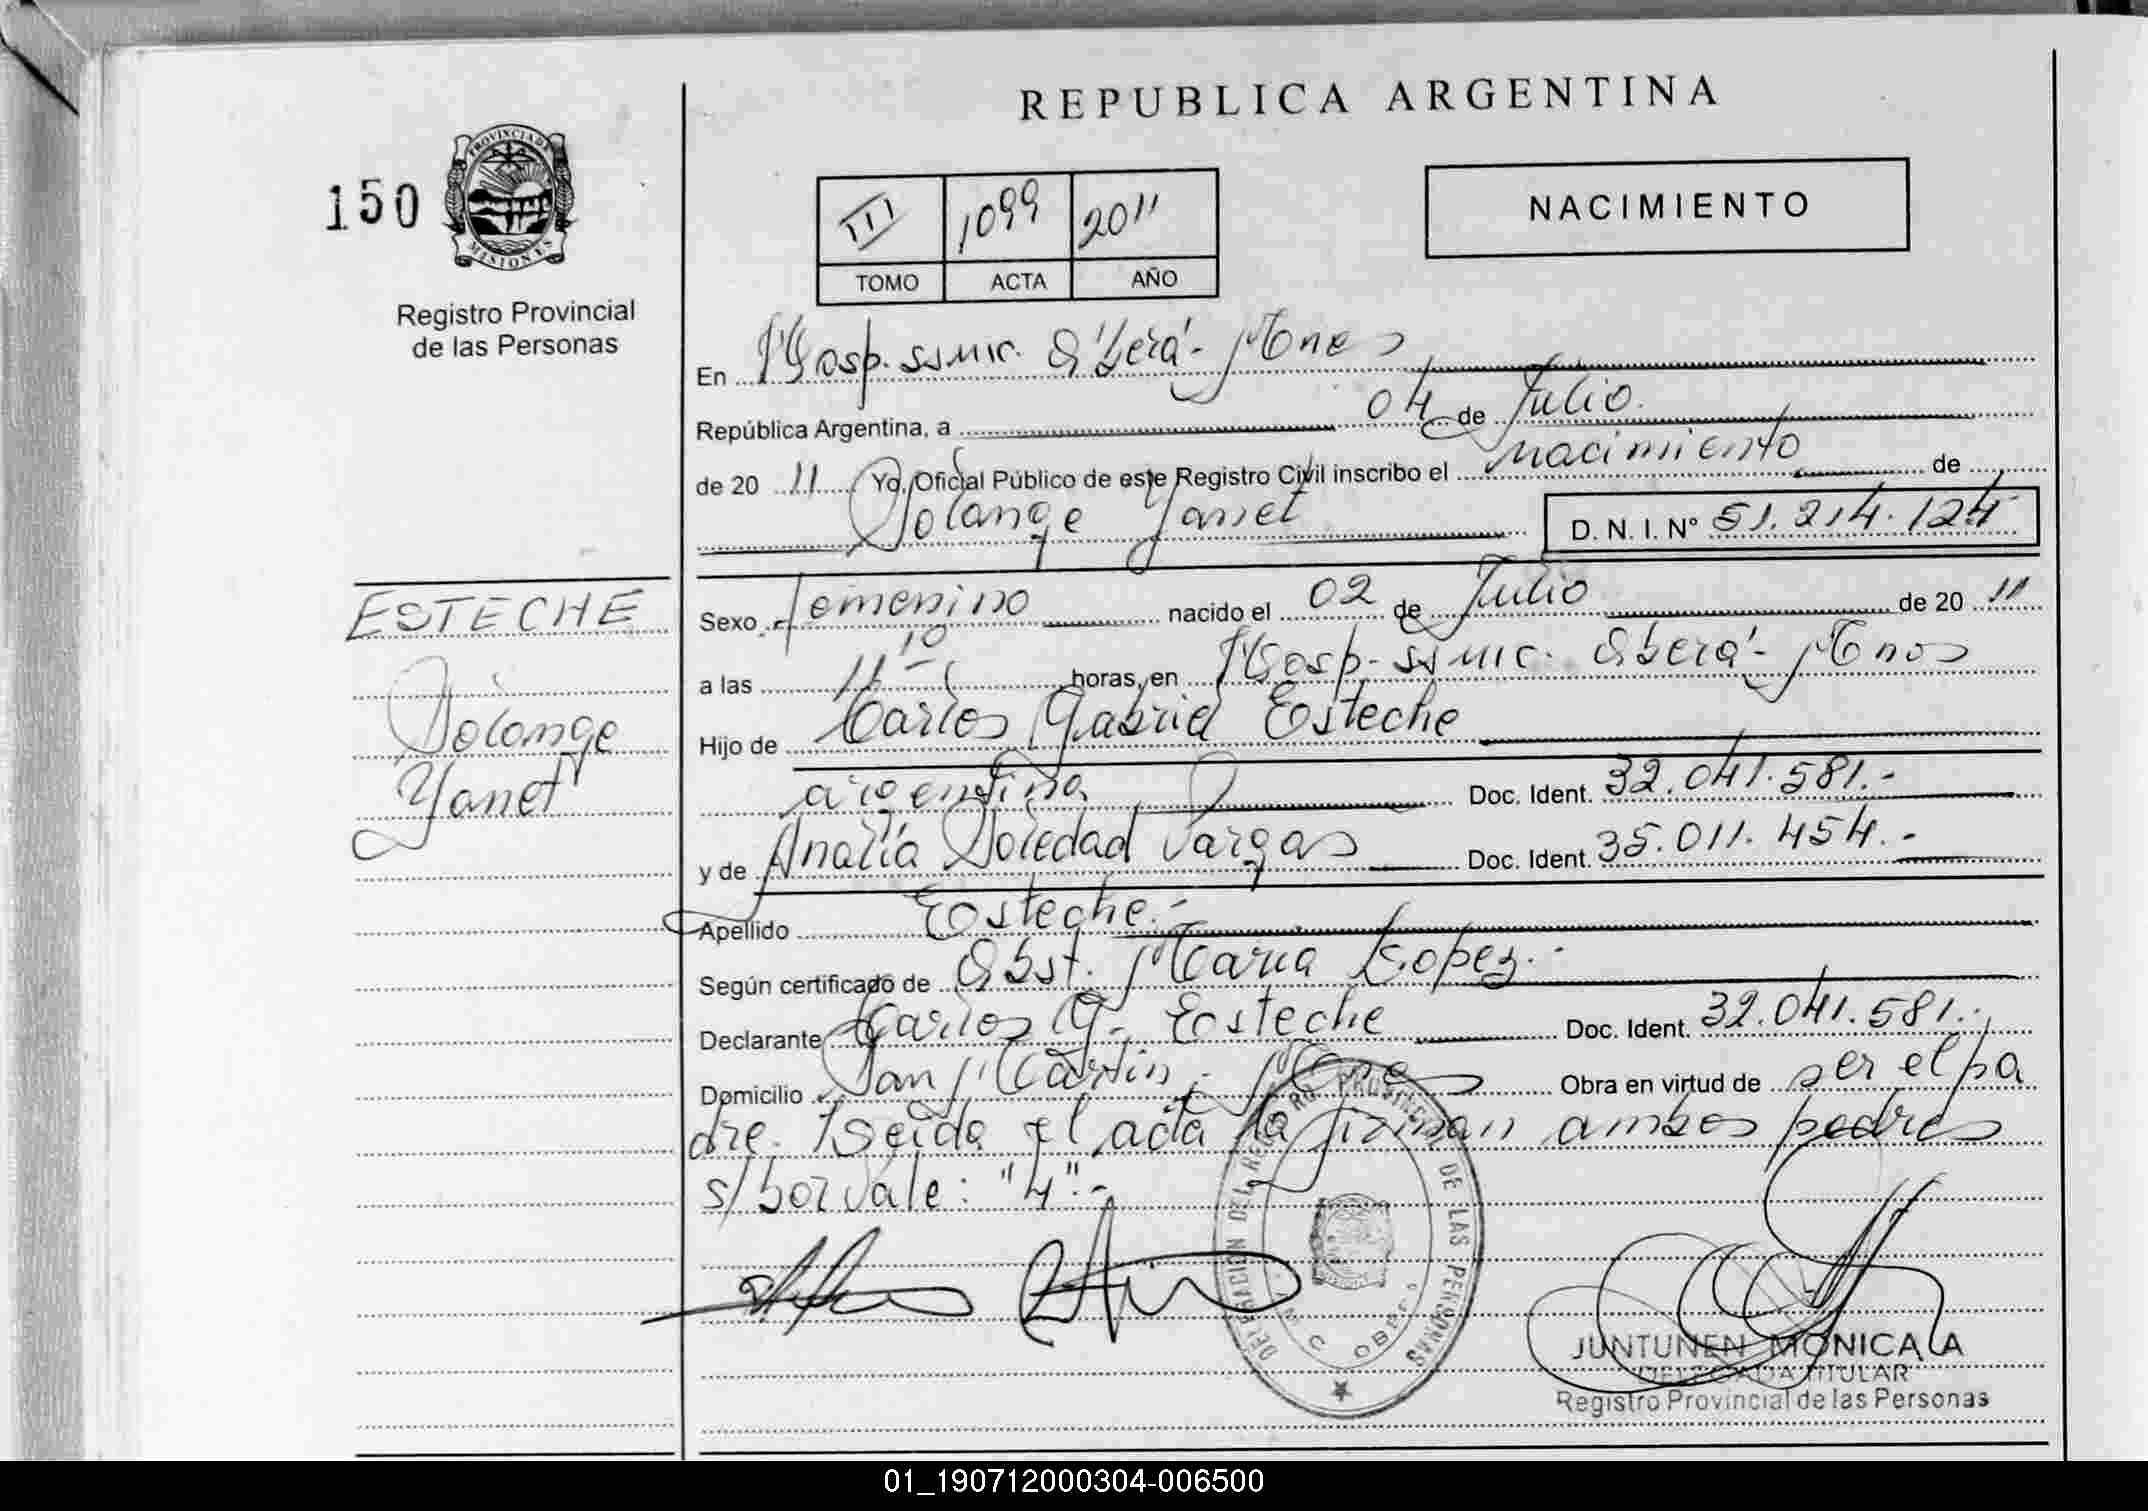 REPUBLICA ARGENTINA
150
PROVINCIA DE
MISIONES
Registro Provincial
de las Personas
III 1099 2011
TOMO ACTA AÑO
NACIMIENTO
En Hosp. ssmic. Oberá- Mnes
República Argentina, a 04 de Julio
de 20 11 Yo, Oficial Público de este Registro Civil inscribo el nacimiento de
Solange Yanet D. N. I. Nº 51.214.124
ESTECHE
Solange
Yanet
Sexo femenino nacido el 02 de Julio de 20 11
a las 11 10 horas, en Hosp. ssmic. Oberá- Mnes
Hijo de Carlos Gabriel Esteche
argentino Doc. Ident. 32.041.581.-
y de Analía Soledad Vargas Doc. Ident. 35.011.454.-
Apellido Esteche.-
Según certificado de Obst. Maria Lopez.-
Declarante Carlos G. Esteche Doc. Ident. 32.041.581.-
Domicilio San Martín, Mnes Obra en virtud de ser el pa
dre. Leída el acta la firman ambos padres
s/bor vale: "4".-
DELEGACION DEL REGISTRO PROVINCIAL DE LAS PERSONAS
JUNTUNEN MONICA A
DELEGADA TITULAR
Registro Provincial de las Personas
01_190712000304-006500